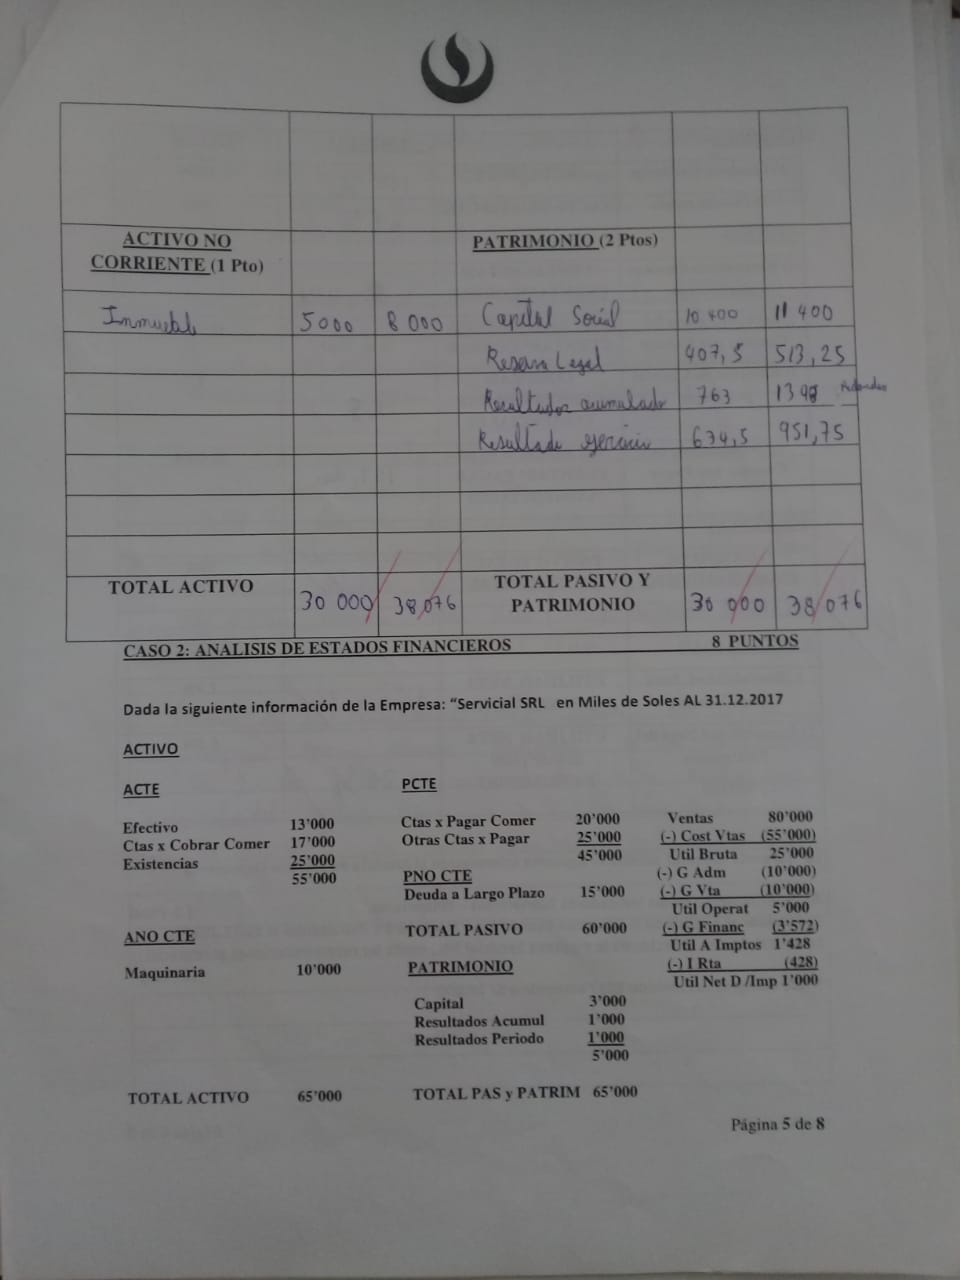 ACTIVO NO CORRIENTE (1 Pto) PATRIMONIO (2 Ptos)
Inmueble 5000 8000 Capital Social 10 400 11 400
Reserva Legal 407,5 513,25
Resultados acumulado 763 1398
Resultado ejercicio 634,5 951,75
TOTAL ACTIVO 30 000 38,076 TOTAL PASIVO Y PATRIMONIO 30 000 38 076
CASO 2: ANALISIS DE ESTADOS FINANCIEROS 8 PUNTOS
Dada la siguiente información de la Empresa: “Servicial SRL en Miles de Soles AL 31.12.2017
ACTIVO
ACTE
Efectivo 13’000
Ctas x Cobrar Comer 17’000
Existencias 25’000
55’000
ANO CTE
Maquinaria 10’000
TOTAL ACTIVO 65’000
PCTE
Ctas x Pagar Comer 20’000
Otras Ctas x Pagar 25’000
45’000
PNO CTE
Deuda a Largo Plazo 15’000
TOTAL PASIVO 60’000
PATRIMONIO
Capital 3’000
Resultados Acumul 1’000
Resultados Periodo 1’000
5’000
TOTAL PAS y PATRIM 65’000
Ventas 80’000
(-) Cost Vtas (55’000)
Util Bruta 25’000
(-) G Adm (10’000)
(-) G Vta (10’000)
Util Operat 5’000
(-) G Financ (3’572)
Util A Imptos 1’428
(-) I Rta (428)
Util Net D /Imp 1’000
Página 5 de 8